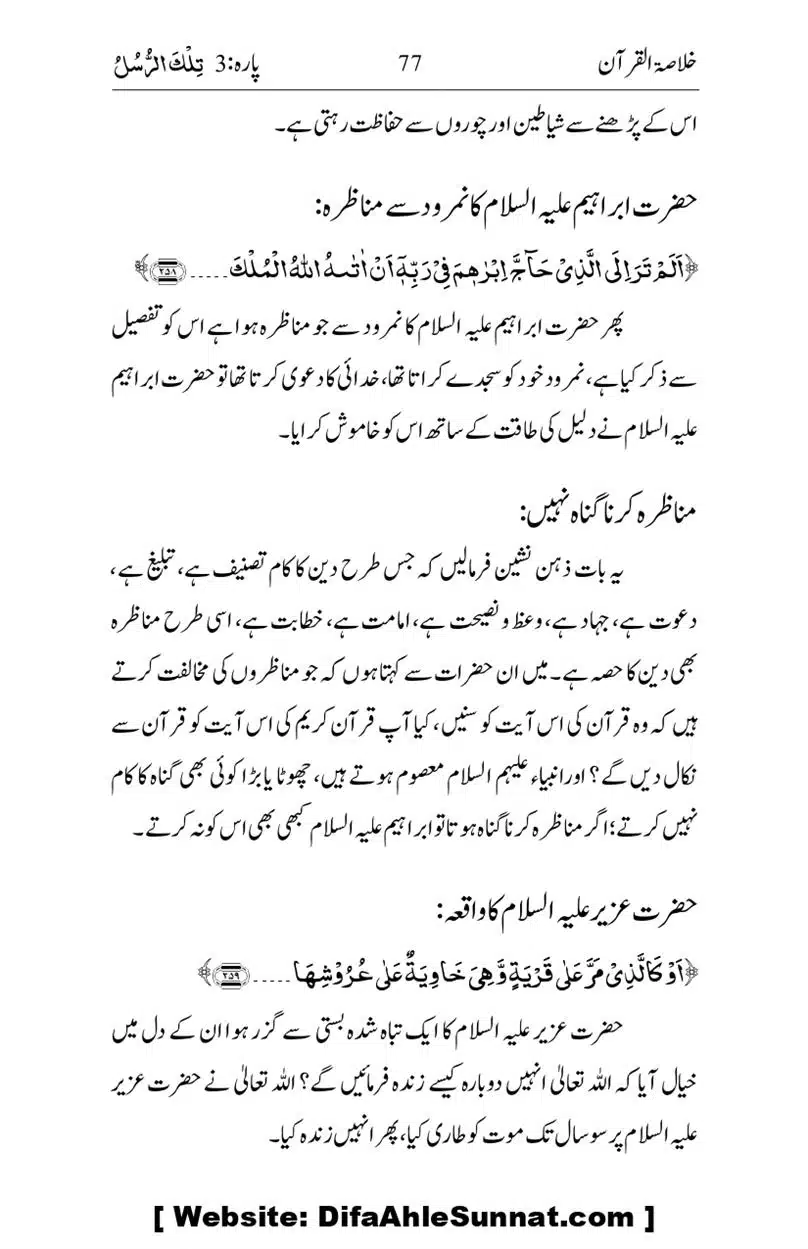 خلاصۃ القرآن 77 پارہ:3 تِلْكَ الرُّسُلُ
اس کے پڑھنے سے شیاطین اور چوروں سے حفاظت رہتی ہے۔
حضرت ابراہیم علیہ السلام کا نمرود سے مناظرہ:
﴿اَلَمْ تَرَ اِلَى الَّذِیْ حَآجَّ اِبْرٰهٖمَ فِیْ رَبِّهٖۤ اَنْ اٰتٰىهُ اللّٰهُ الْمُلْكَ.....﴿۲۵۸﴾﴾
پھر حضرت ابراہیم علیہ السلام کا نمرود سے جو مناظرہ ہوا ہے اس کو تفصیل
سے ذکر کیا ہے، نمرود خود کو سجدے کراتا تھا، خدائی کا دعوی کرتا تھا تو حضرت ابراہیم
علیہ السلام نے دلیل کی طاقت کے ساتھ اس کو خاموش کرایا۔
مناظرہ کرنا گناہ نہیں:
یہ بات ذہن نشین فرمالیں کہ جس طرح دین کا کام تصنیف ہے، تبلیغ ہے،
دعوت ہے، جہاد ہے، وعظ و نصیحت ہے، امامت ہے، خطابت ہے، اسی طرح مناظرہ
بھی دین کا حصہ ہے۔ میں ان حضرات سے کہتا ہوں کہ جو مناظروں کی مخالفت کرتے
ہیں کہ وہ قرآن کی اس آیت کو سنیں، کیا آپ قرآن کریم کی اس آیت کو قرآن سے
نکال دیں گے؟ اور انبیاء علیہم السلام معصوم ہوتے ہیں، چھوٹا یا بڑا کوئی بھی گناہ کا کام
نہیں کرتے؛ اگر مناظرہ کرنا گناہ ہوتا تو ابراہیم علیہ السلام کبھی بھی اس کو نہ کرتے۔
حضرت عزیر علیہ السلام کا واقعہ:
﴿اَوْ كَالَّذِیْ مَرَّ عَلٰى قَرْیَةٍ وَّ هِیَ خَاوِیَةٌ عَلٰى عُرُوْشِهَا.....﴿۲۵۹﴾﴾
حضرت عزیر علیہ السلام کا ایک تباہ شدہ بستی سے گزر ہوا ان کے دل میں
خیال آیا کہ اللہ تعالیٰ انہیں دوبارہ کیسے زندہ فرمائیں گے؟ اللہ تعالیٰ نے حضرت عزیر
علیہ السلام پر سو سال تک موت کو طاری کیا، پھر انہیں زندہ کیا۔
[ Website: DifaAhleSunnat.com ]